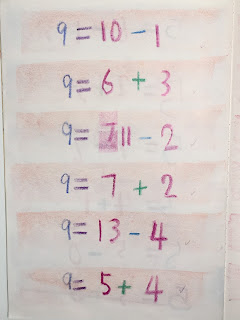 9 = 10 - 1
9 = 6 + 3
9 = 11 - 2
9 = 7 + 2
9 = 13 - 4
9 = 5 + 4